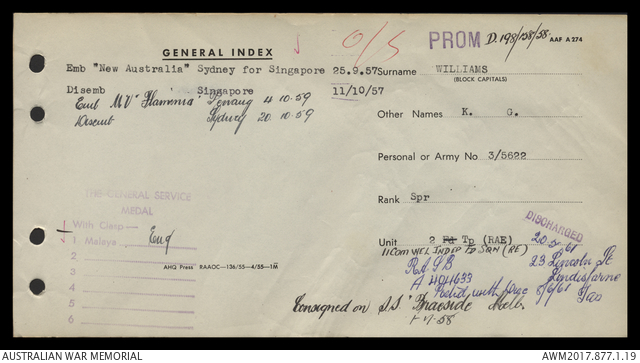 GENERAL INDEX
O/S
PROM D.198/158/58 AAF A 274
Emb "New Australia" Sydney for Singapore 25.9.57
Surname WILLIAMS
(BLOCK CAPITALS)
Disemb Singapore 11/10/57
Emb MV "Flaminia" Penang 4.10.59
Disemb Sydney 20.10.59
Other Names K. G.
Personal or Army No 3/5622
Rank Spr
THE GENERAL SERVICE
MEDAL
With Clasp—
1 Malaya Eng
2
3
4
5
6
AHQ Press RAAOC—136/55—4/55—1M
DISCHARGED
20.5.61
Unit 2 Fd Tp (RAE)
11 COMWEL INDEP FD SQN (RE)
23 Lincoln St
Lindisfarne
Tas
R.A.S.B
A 404633
5/6/61
Consigned on S.S. "Braeside" Melb.
1-7-58
AUSTRALIAN WAR MEMORIAL
AWM2017.877.1.19